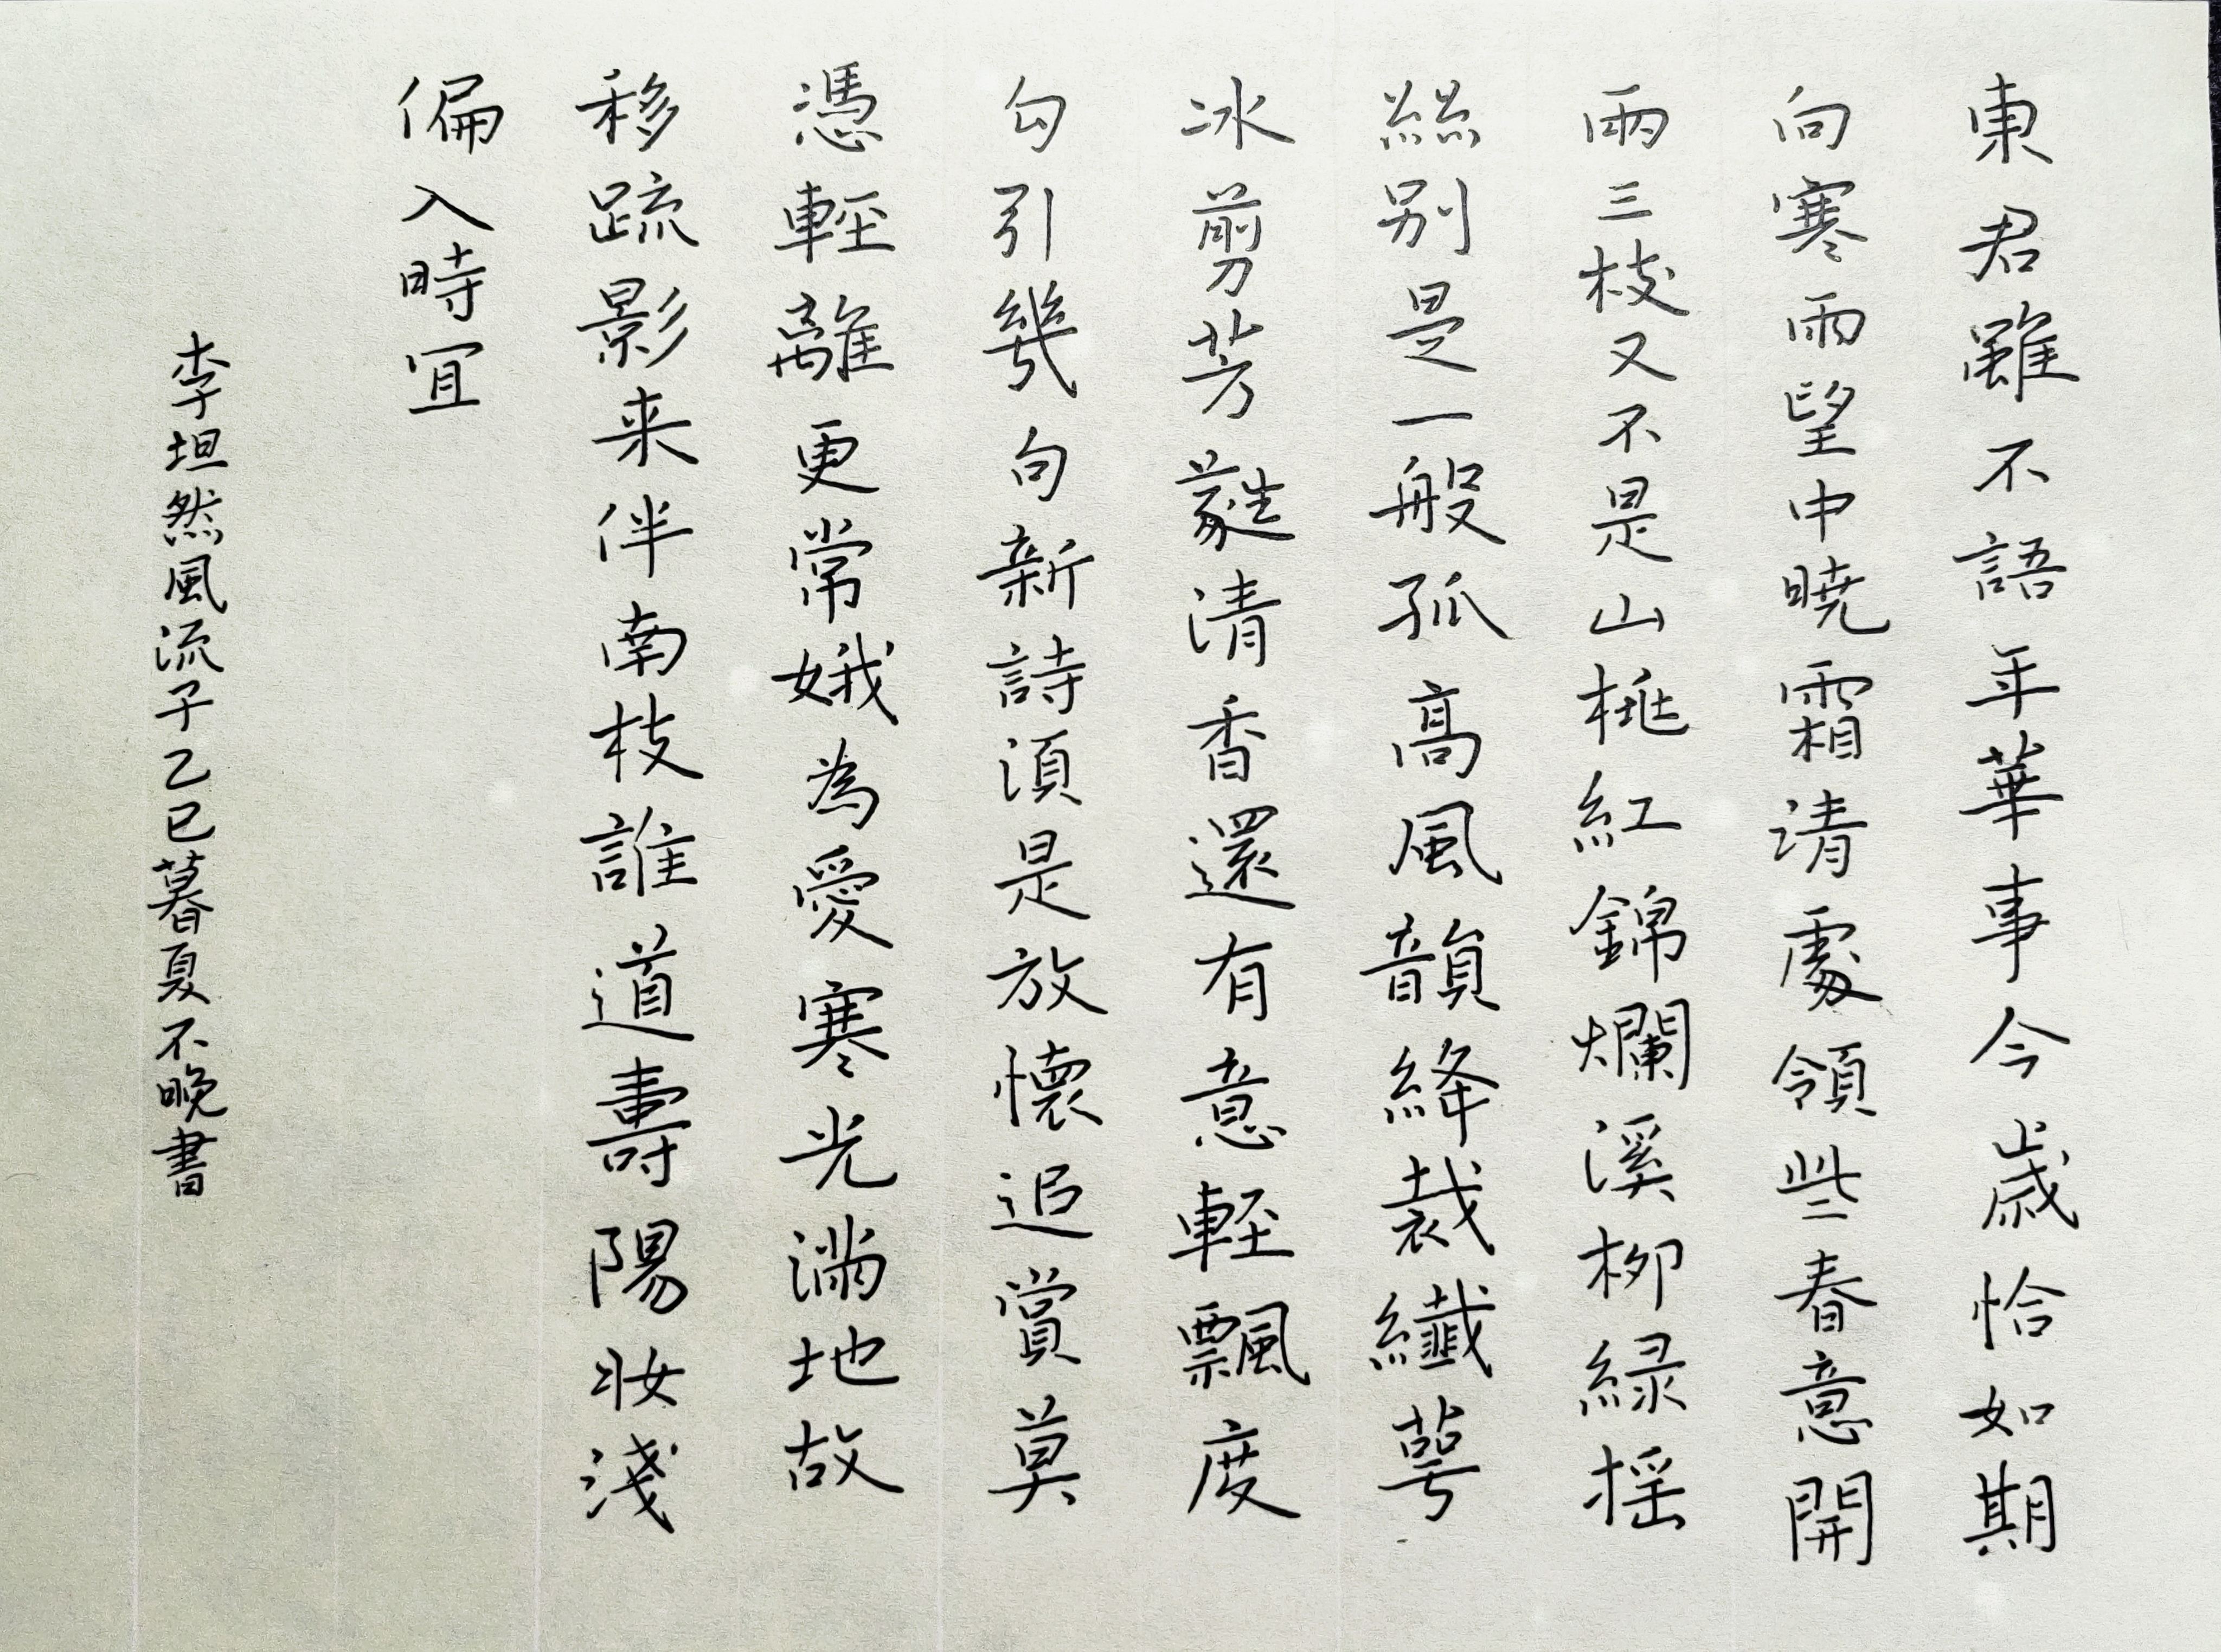 東君雖不語年華事今歲恰如期
向寒雨望中曉霜清處領些春意開
兩三枝又不是山桃紅錦爛溪柳綠摇
絲别是一般孤高風韻絳裁纖萼
冰剪芳蕤清香還有意輕飄度
勾引幾句新詩須是放懷追賞莫
憑輕離更常娥為愛寒光滿地故
移疏影来伴南枝誰道壽陽妝淺
偏入時宜
李坦然風流子乙巳暮夏不晚書